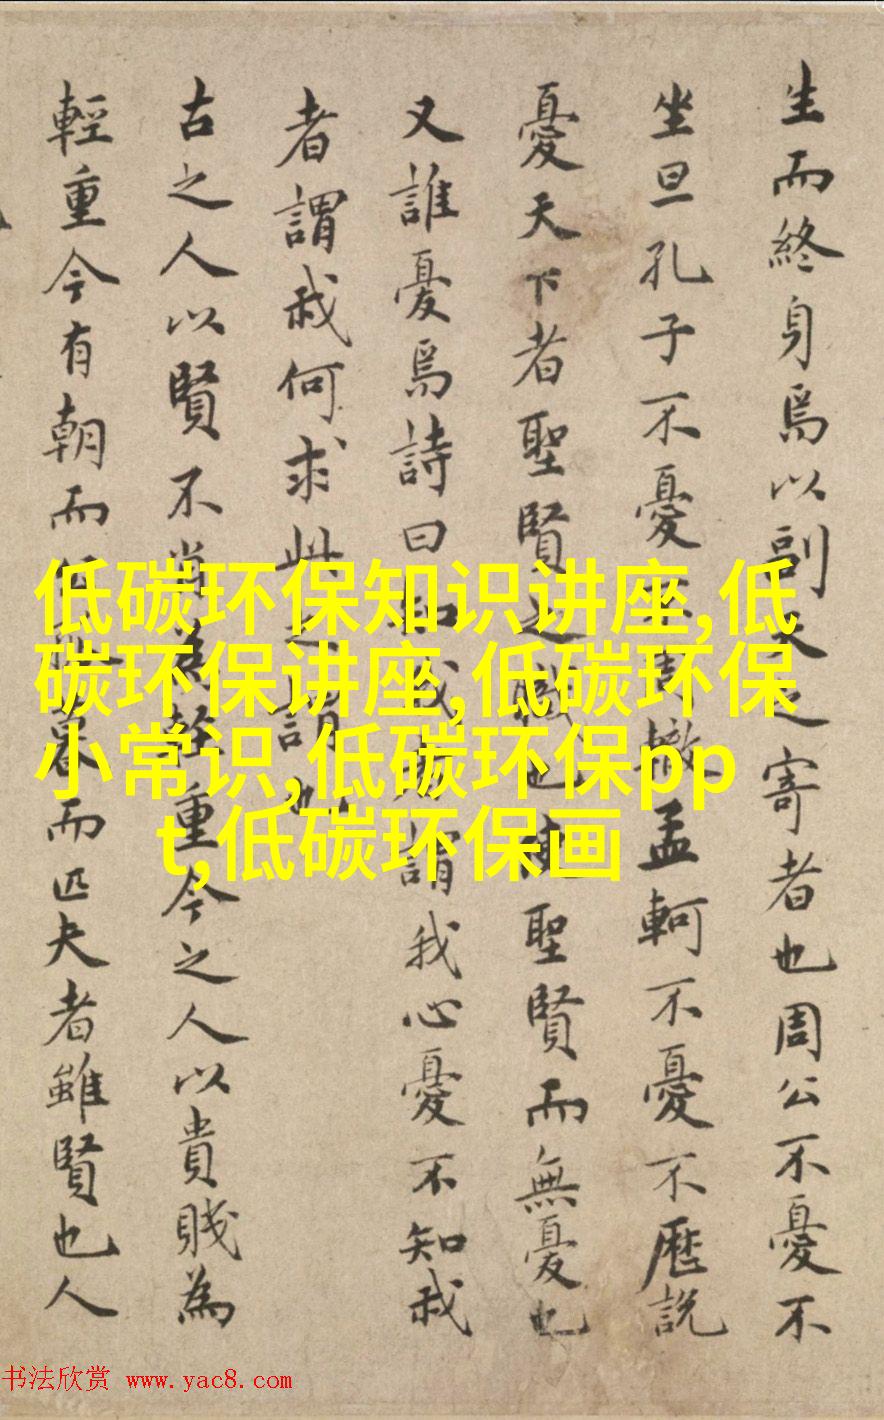 生而終身焉以副天之寄者也周公不憂不
坐旦孔子不憂不周轍孟軻不憂不歷說
憂天下者聖賢之職也聖賢而無憂也
又誰憂焉詩曰知我者謂我心憂不知我
者謂我何求此之謂也
古之人以賢不肖為輕重今之人以貴賤為
輕重今有朝而暮而匹夫者雖賢也人
低碳环保知识讲座,低
碳环保讲座,低碳环保
小常识,低碳环保pp
t,低碳环保画
书法欣赏 www.yac8.com